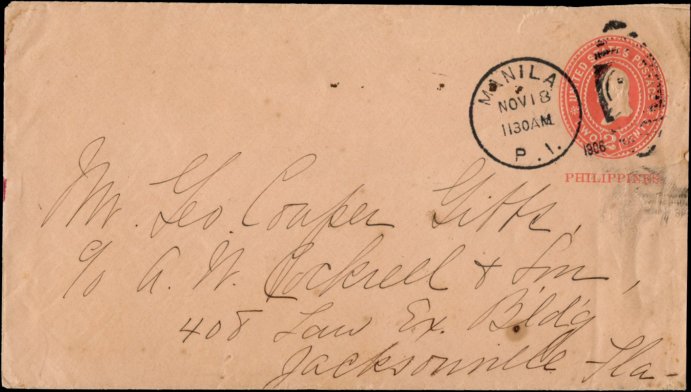 MANILA
NOV 18
1130 AM
P. I.
1906
UNITED STATES POSTAGE
TWO 2 CENTS
PHILIPPINES
Mr. Geo. Couper Gibbs,
c/o A. W. Cockrell & Son,
408 Law Ex. Bldg
Jacksonville Fla-